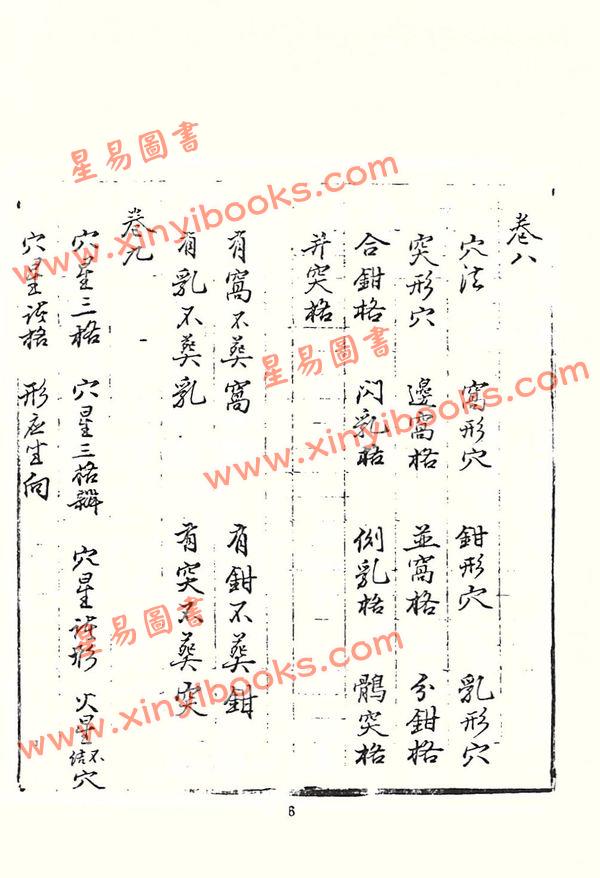 卷八
穴法 窩形穴 鉗形穴 乳形穴
突形穴 邊窩格 並窩格 分鉗格
合鉗格 閃乳格 側乳格 鶻突格
并突格
有窩不葬窩 有鉗不葬鉗
有乳不葬乳 有突不葬突
卷九
穴星三格 穴星三格辨 穴星諸形 火星不結穴
穴星諸格 形应生向
6
星易圖書
www.xinyibooks.com
星易圖書
www.xinyibooks.com
星易圖書
www.xinyibooks.com